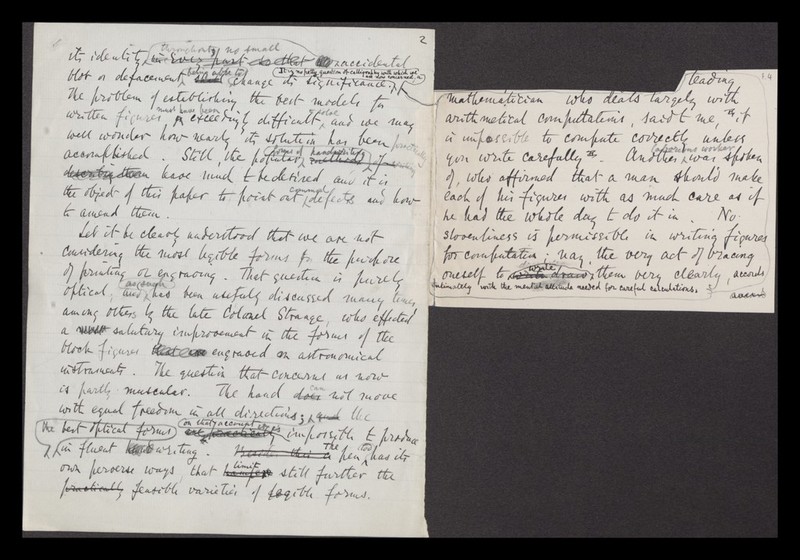 2
its identity, throughout; no small accidental
blot or defacement, being able to change its significance. It is no petty question of calligraphy with which we are now concerned.
The problem of establishing the best models for
written figures must have been exceedingly difficult, and we may
well wonder how nearly its solution has been practically
accomplished. Still, the popular forms of handwriting
have much to be desired and it is
the object of this paper to point out common defects and how
to amend them.
Let it be clearly understood that we are not
considering the most legible forms for the purpose
of printing or engraving. That question is purely
optical, and has been usefully discussed many times,
among others by the late Colonel Strange, who effected
a salutary improvement in the forms of the
block figures engraved on astronomical
instruments. The question that concerns us now
is partly muscular. The hand can not move
with equal freedom in all directions; the
the best optical forms on that account impossible to produce
in fluent writing. The pen too has its
own perverse ways that limit still further the
feasible varieties of legible forms.
4
leading
mathematician who deals largely with
arithmetical computations, said to me, "it
is impossible to compute correctly unless
you write carefully". Another was spoken
of, who affirmed that a man should make
each of his figures with as much care as if
he had the whole day to do it in. No
slovenliness is permissible in writing figures
for computation; nay, the very act of bracing
oneself to write them very clearly, accords
intimately with the mental attitude needed for careful calculations.